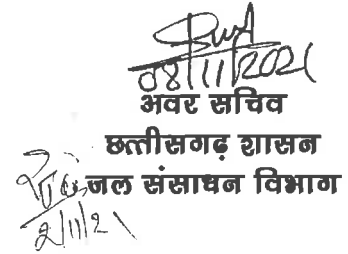 08/11/2021
अवर सचिव
छत्तीसगढ़ शासन
जल संसाधन विभाग
2/11/21